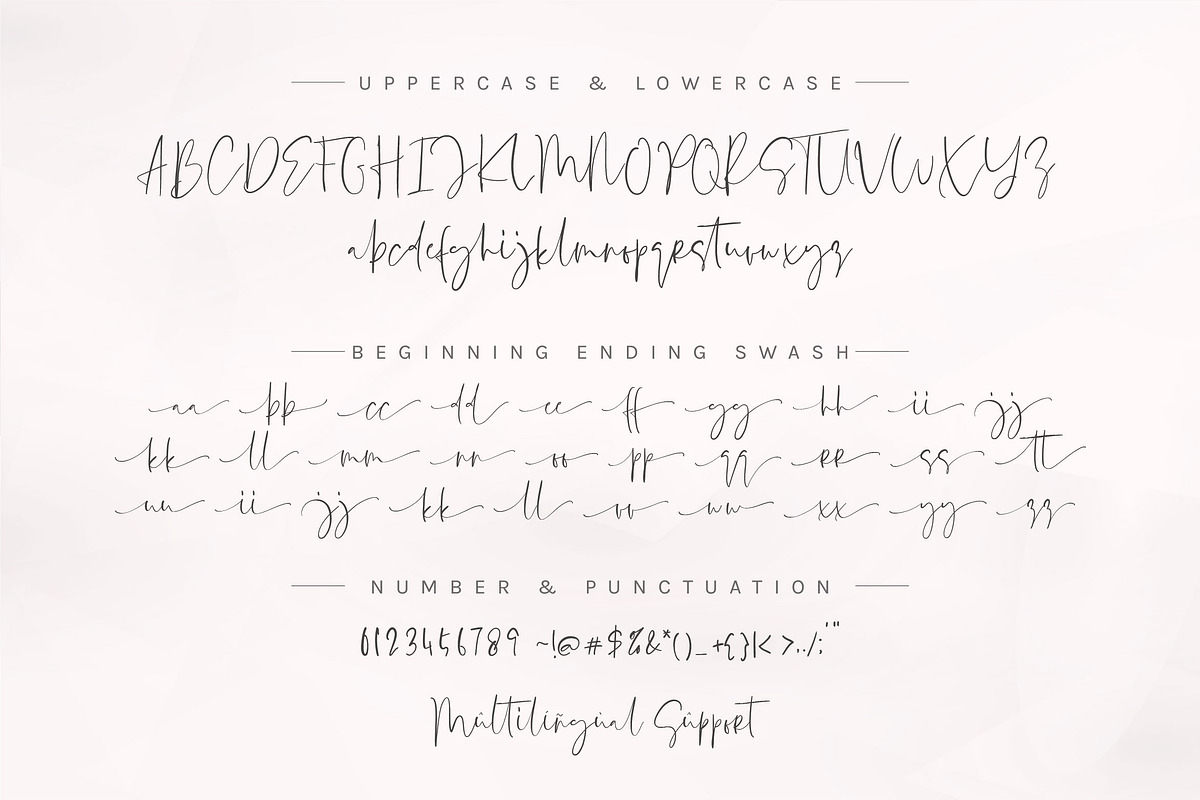 UPPERCASE & LOWERCASE
ABCDEFGHIJKLMNOPQRSTUVWXYZ
abcdefghijklmnopqrstuvwxyz
BEGINNING ENDING SWASH
aa bb cc dd ee ff gg hh ii jj
kk ll mm nn oo pp qq rr ss tt
uu ii jj kk ll vv ww xx yy zz
NUMBER & PUNCTUATION
0123456789 ~!@#$%&*()_+{}|<>.,/;'"
Mûltilíñgùal Sûppört